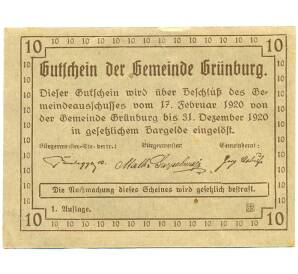 10 10
Gutschein der Gemeinde Grünburg.
Dieser Gutschein wird über Beschluß des Ge-
meindeausschusses vom 17. Februar 1920 von
der Gemeinde Grünburg bis 31. Dezember 1920
in gesetzlichem Bargelde eingelöst.
Bürgermeister-Stellvertr.: Bürgermeister: Gemeinderat:
Die Nachmachung dieses Scheines wird gesetzlich bestraft.
1. Auflage.
10 10